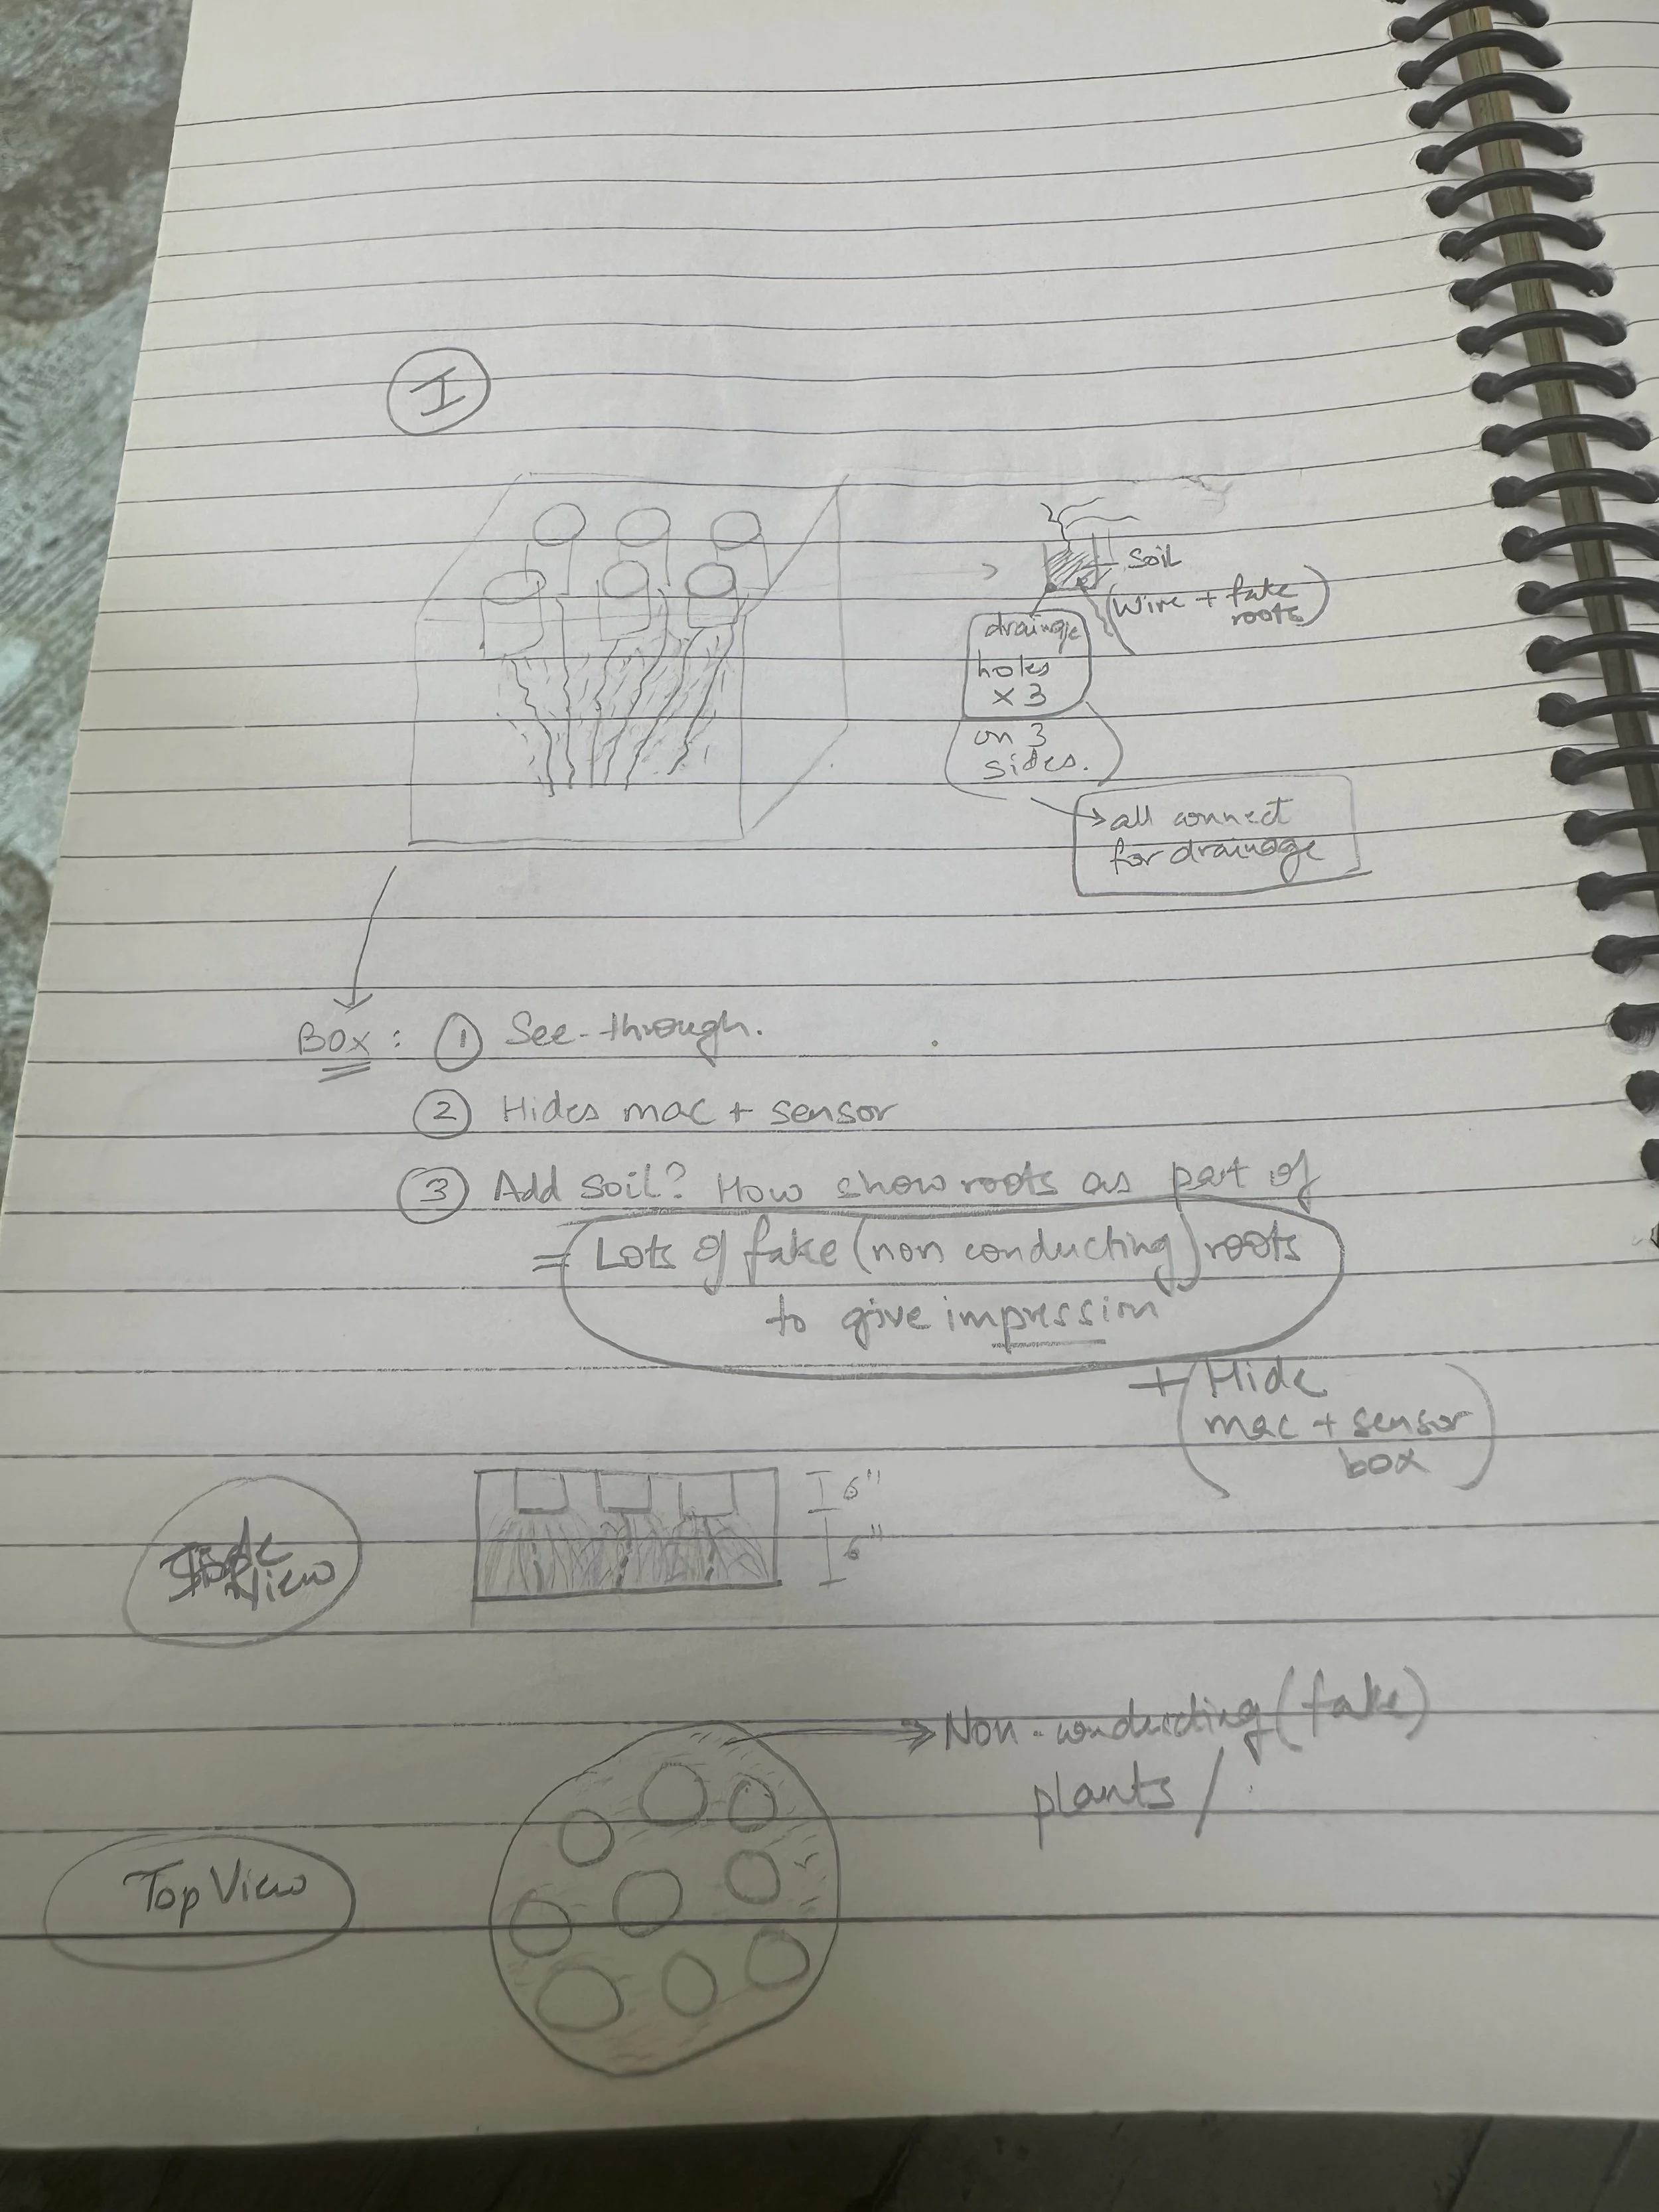 I
Soil
(Wire + fake
roots)
drainage
holes
x 3
on 3
sides.
all connect
for drainage
Box : 1 See-through.
2 Hides mac + sensor
3 Add soil? How show roots as part of
= Lots of fake (non conducting) roots
to give impression
+ (Hide
mac + sensor
box)
6"
6"
Side
View
Non-conducting (fake)
plants /
Top View